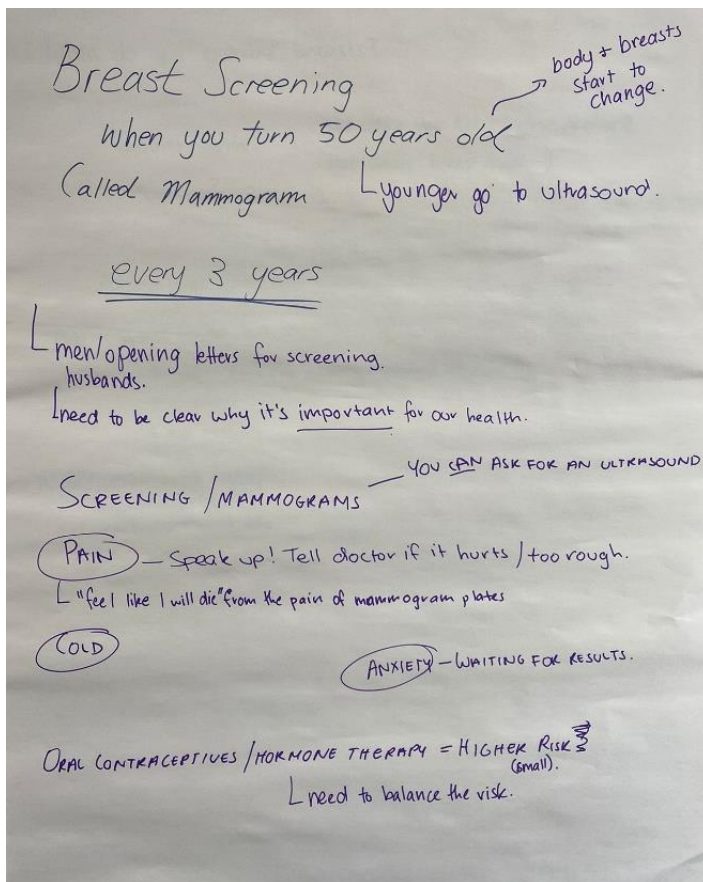 Breast Screening
body + breasts
start to
change.
when you turn 50 years old
Called Mammogram
younger go to ultrasound.
every 3 years
men/opening letters for screening.
husbands.
need to be clear why it's important for our health.
YOU CAN ASK FOR AN ULTRASOUND
SCREENING / MAMMOGRAMS
PAIN - Speak up! Tell doctor if it hurts / too rough.
"feel like I will die" from the pain of mammogram plates
COLD
ANXIETY - WAITING FOR RESULTS.
ORAL CONTRACEPTIVES / HORMONE THERAPY = HIGHER RISK
(small).
need to balance the risk.